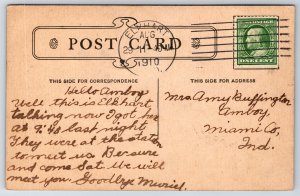 ELKHART
AUG
1910
POST CARD
ONE CENT
THIS SIDE FOR CORRESPONDENCE
THIS SIDE FOR ADDRESS
Hello Amboy
Well this is Elkhart
talking now I got here
at 7:40 last night
They were at the station
to meet us. Be sure
and come Sat. We will
meet you. Goodbye Muriel.
Mrs Amy Buffington
Amboy
Miami Co,
Ind.